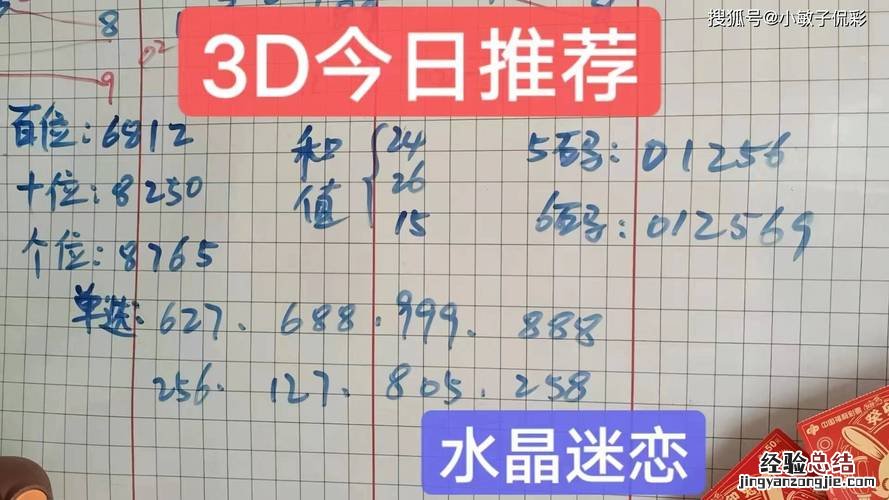 搜狐号@小敏子侃彩
8
9
3D今日推荐
百位:6812
十位:8250
个位:8765
和值
24
26
15
5码:01256
6码:012569
单选:627.688.999.888
256.127.805.258
水晶迷恋
中国福利彩票
经验总结
jingyanzongjie.com